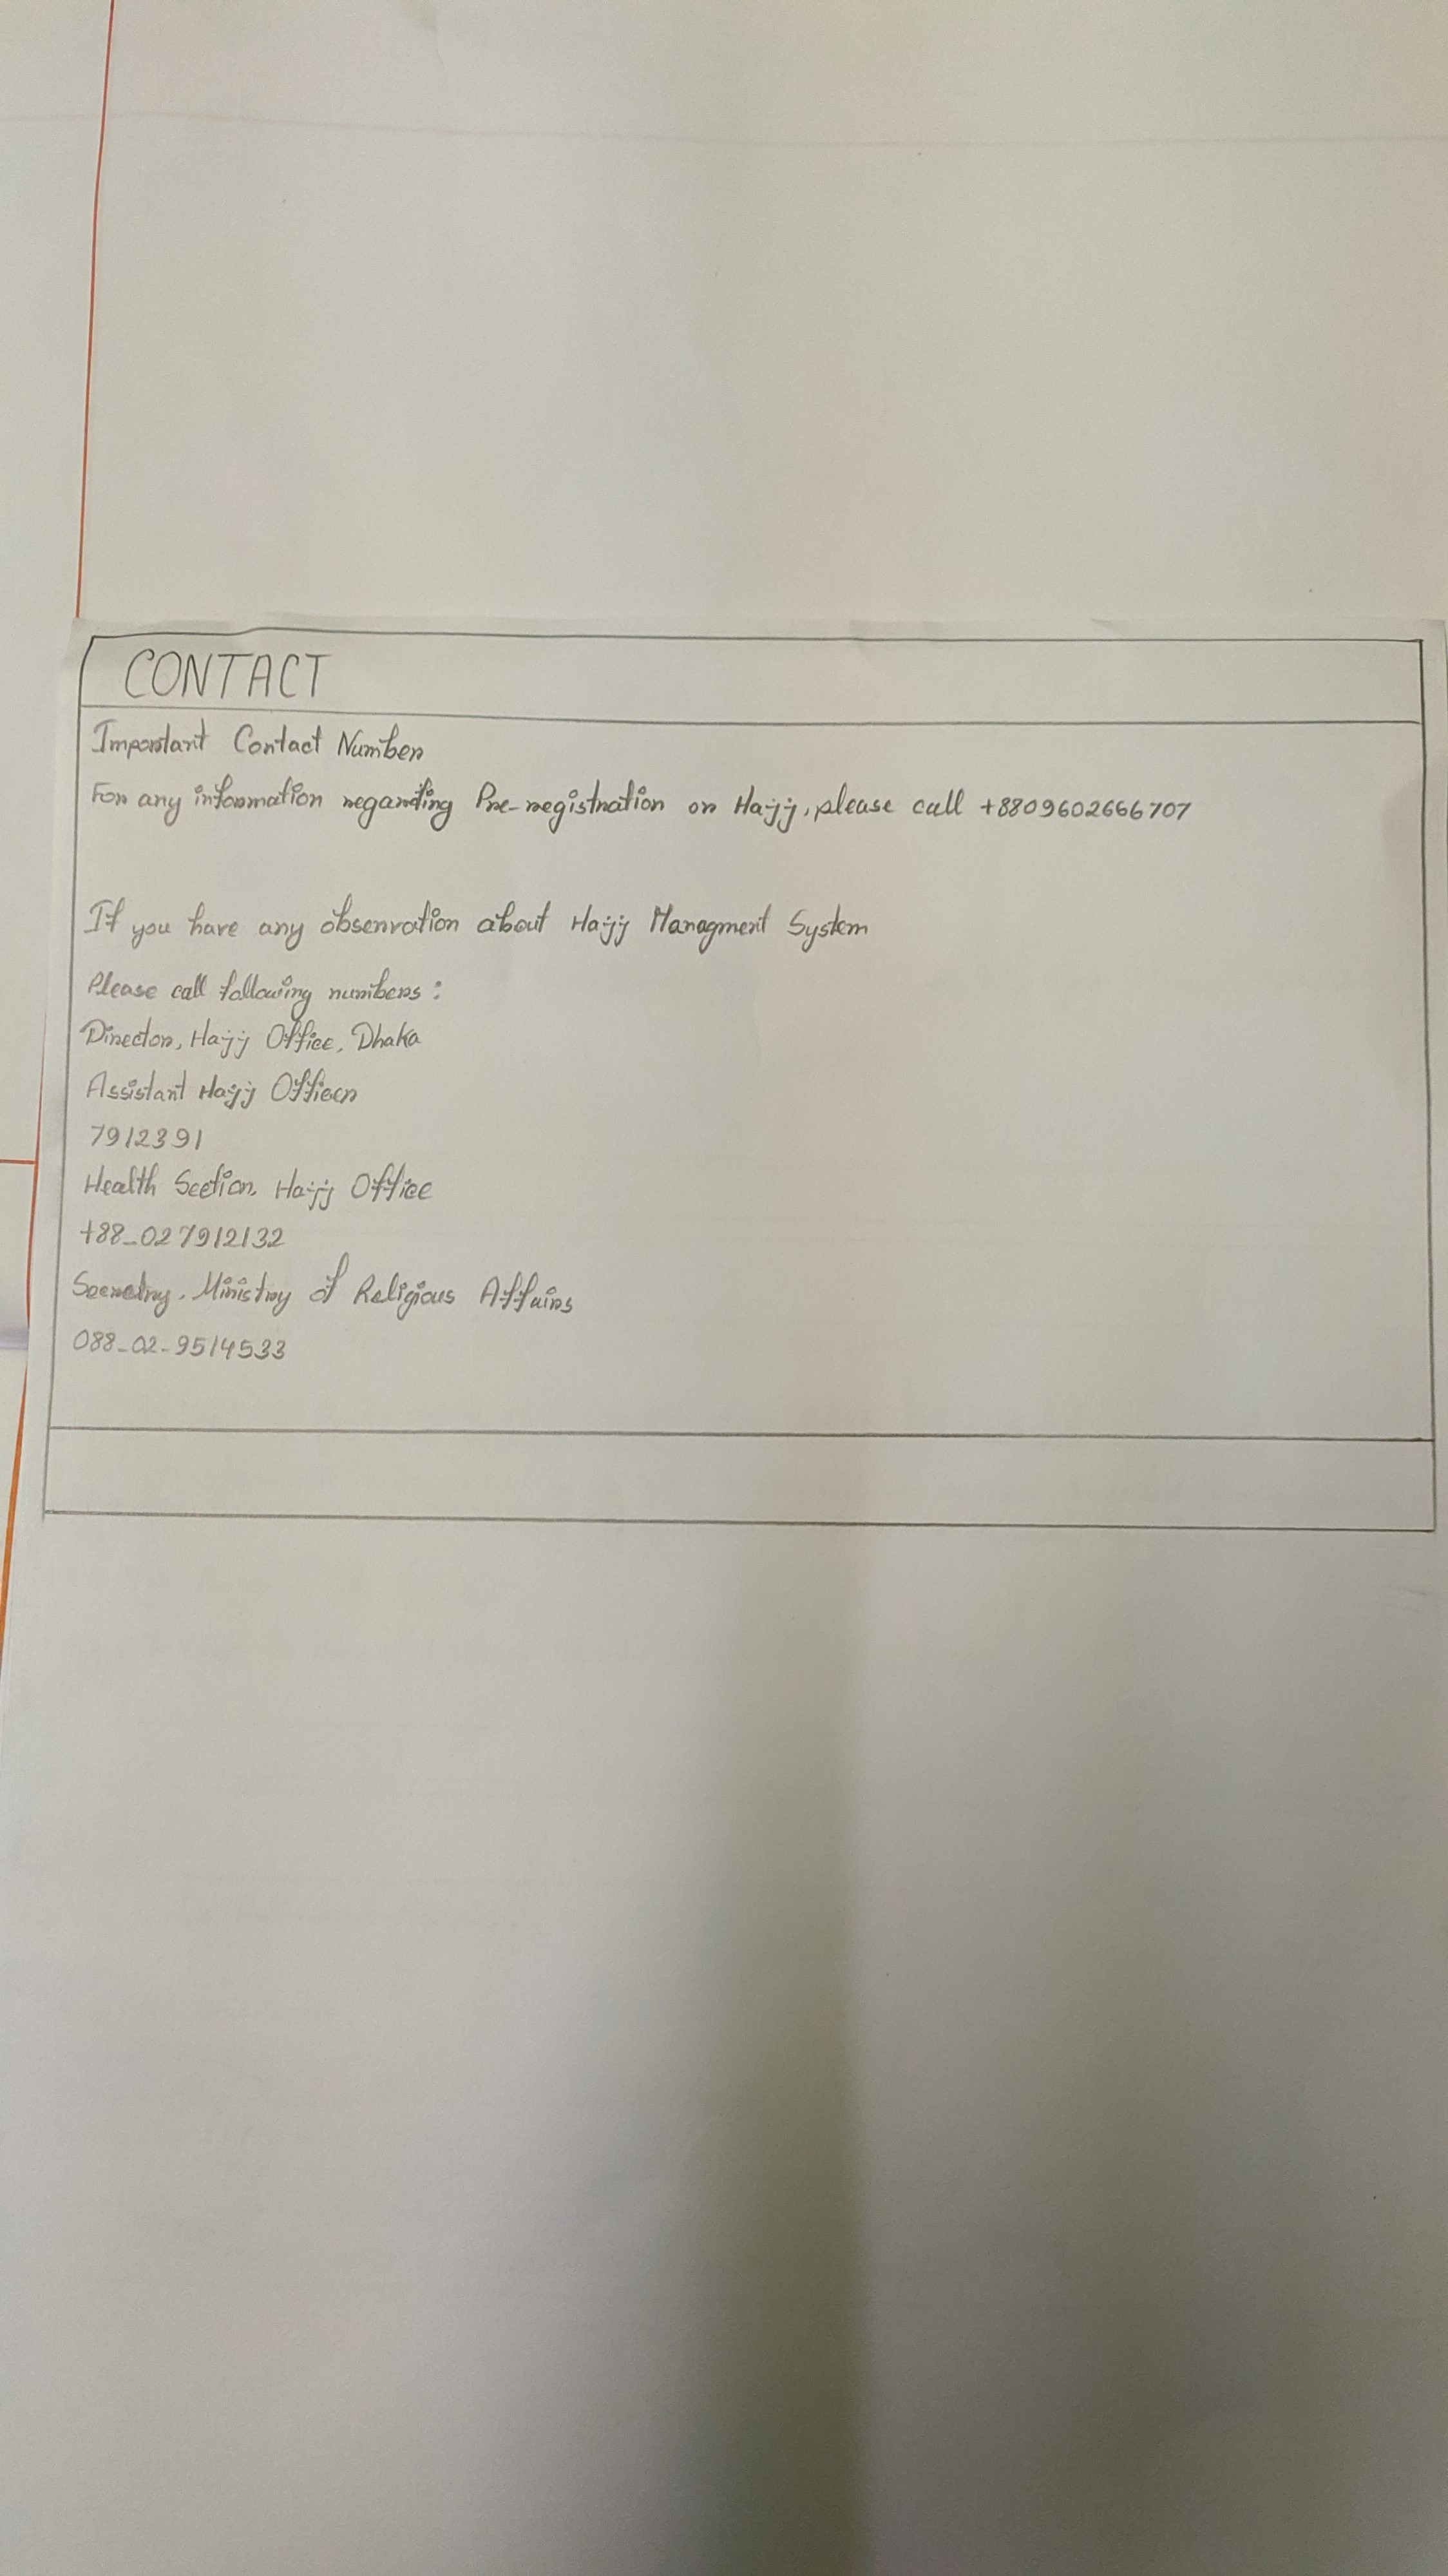 CONTACT
Important Contact Number
For any information regarding Pre-registration or Hajj, please call +8809602666707
If you have any observation about Hajj Managment System
Please call following numbers :
Director, Hajj Office, Dhaka
Assistant Hajj Officer
7912391
Health Section, Hajj Office
+88-027912132
Secretry, Ministry of Religious Affairs
088-02-9514533